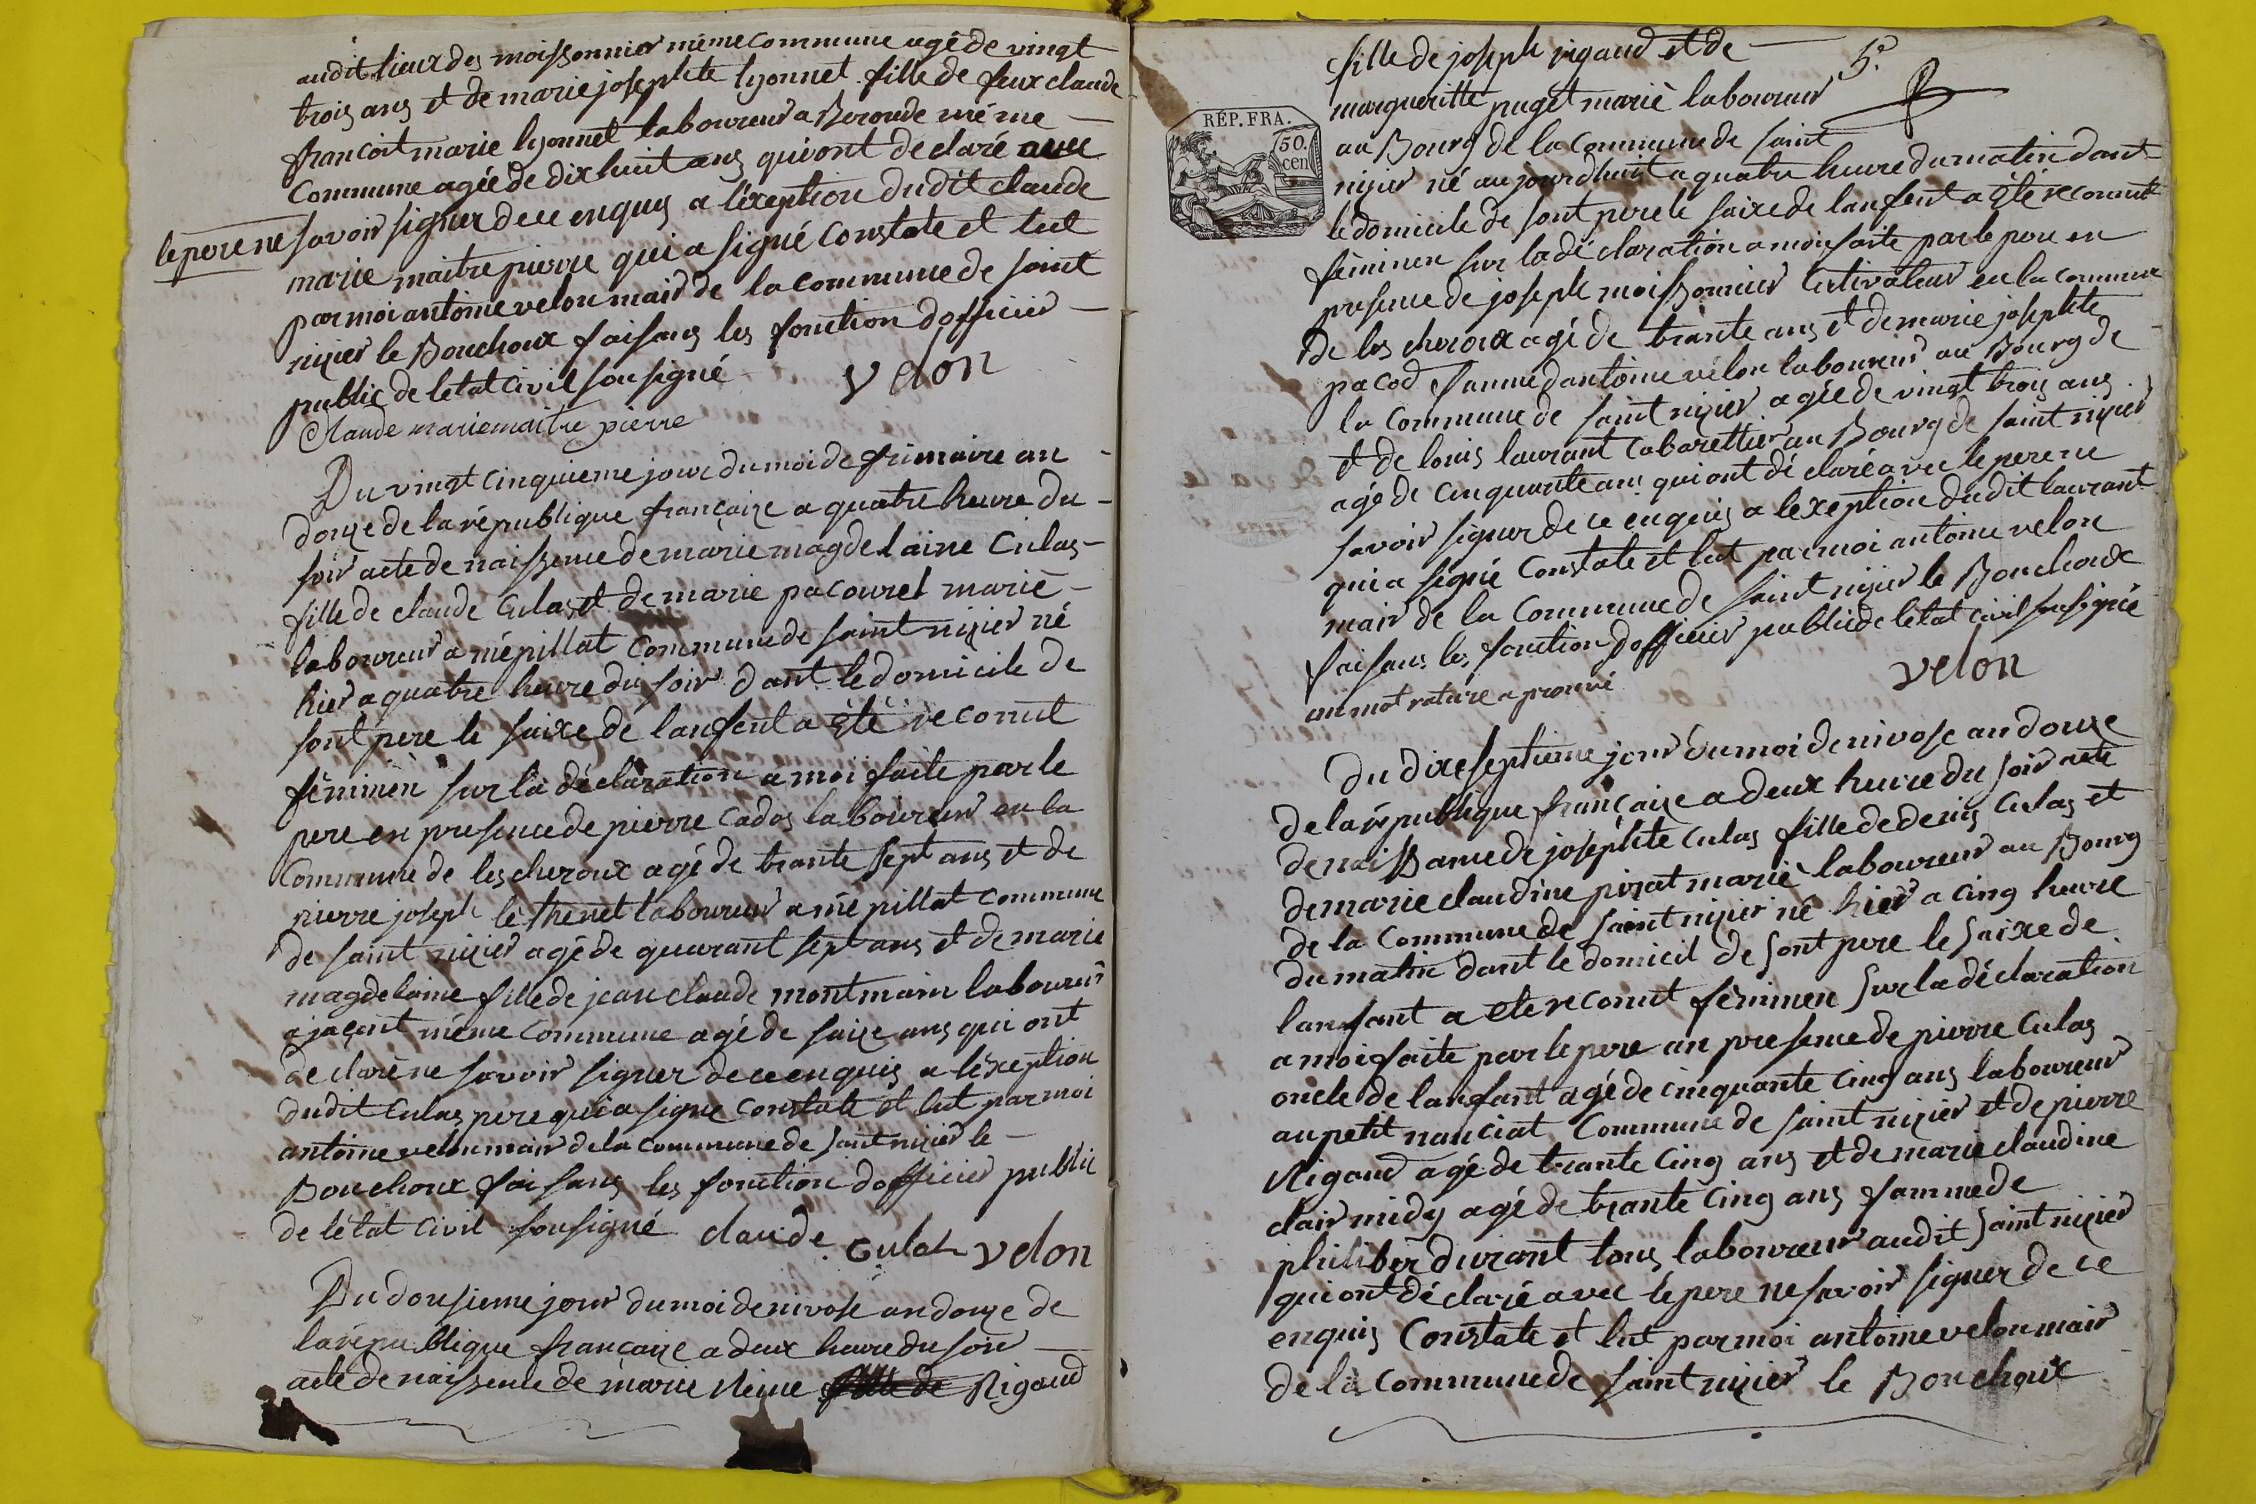 audit lieux des moissonnier même commune agé de vingt
trois ans et de marie josephte lyonnet fille de feux claude
francoit marie lyonnet laboureur a Beroude même
Commune agée de dix huit ans qui ont declaré avec
le pere ne savoir signer de ce enquis a l'exeption dudit claude
marie maitre pierre qui a signé Constate et lut
par moi antoine velon mair de la commune de saint
nizier le Bouchoux faisans les fonction d officier
public de letat Civil sousigné velon
Claude marie maitre pierre
Du vingt cinquieme jour du moi de frimaire an
douze de la république françaize a quatre heure du
soir acte de naissence de marie magdelaine Culas
fille de claude Culas et de marie pacouret marié
laboureur a mépillat Commune de saint nizier né
hier a quatre heure du soir dant le domicile de
sont pere le saixe de lanfent a été reconut
féminen sur la déclaration a moi faite par le
pere en presence de pierre Cadas laboureur en la
Commune de lescheroux agé de trante sept ans et de
pierre joseph le thenet laboureur a mépillat commune
de saint nizier agé de quarant sept ans et de marie
magdelaine fille de jean claude montmain laboureur
a jaçant même commune agé de saize ans qui ont
declaré ne savoir signer de ce enquis a l'éxception
dudit Culas pere qui a signe Constate et lut par moi
antoine velon mair de la commune de saint nizier le
Bouchoux faisans les fonction d officier public
de létat Civil sousigné claude Culas velon
Du dousieme jour du moi de nivose an douze de
la république françaize a deux heure du soir
acte de naissence de marie Reine fille de Rigaud
5e
RÉP. FRA.
50.
cen
fille de joseph rigaud et de
margueritte puget marié laboureur
au Bourg de la Commune de saint
nizier né aujourdhuit a quatre heure du matin dant
le domicile de sont pere le saixe de lanfent a été reconut
féminen sur la déclaration a moi faite par le pere en
presence de joseph moissonnier Cultivateur en la commune
de les cheroux agé de trante ans et de marie josephte
pacod famme d antoine vélon laboureur au Bourg de
la Commune de saint nizier agée de vingt trois ans
et de louis laurant Cabarettier au Bourg de saint nizier
agé de Cinquante ans qui ont déclaré avec le pere ne
savoir signer de ce enquis a lexeption dudit laurant
qui a signé Constate et lut par moi antoine velon
mair de la Commune de saint nizier le Bouchoux
faisans les fonction d officier public de letat Civil sousigné
un mot rature aprouvé velon
Du dix septieme jour du moi de nivose an douze
de la république françaize a deux heure du soir acte
de naissance de joséphte Culas fille de denis Culas et
de marie claudine pirat marié laboureur au Bourg
de la Commune de saint nizier né hier a cinq heure
du matin dant le domicil de sont pere le saixe de
lanfant a ete reconut féminen sur la déclaration
a moi faite par le pere an presence de pierre Culas
oncle de lanfant agé de cinquante cinq ans laboureur
au petit nanciat Commune de saint nizier et de pierre
Rigaud agé de trante cinq ans et de marie claudine
clair midy agé de trante cinq ans famme de
philiber durant tous laboureur audit saint nizier
qui ont déclaré avec le pere ne savoir signer de ce
enquis Constate et lut par moi antoine velon mair
de la Commune de saint nizier le Bouchoux